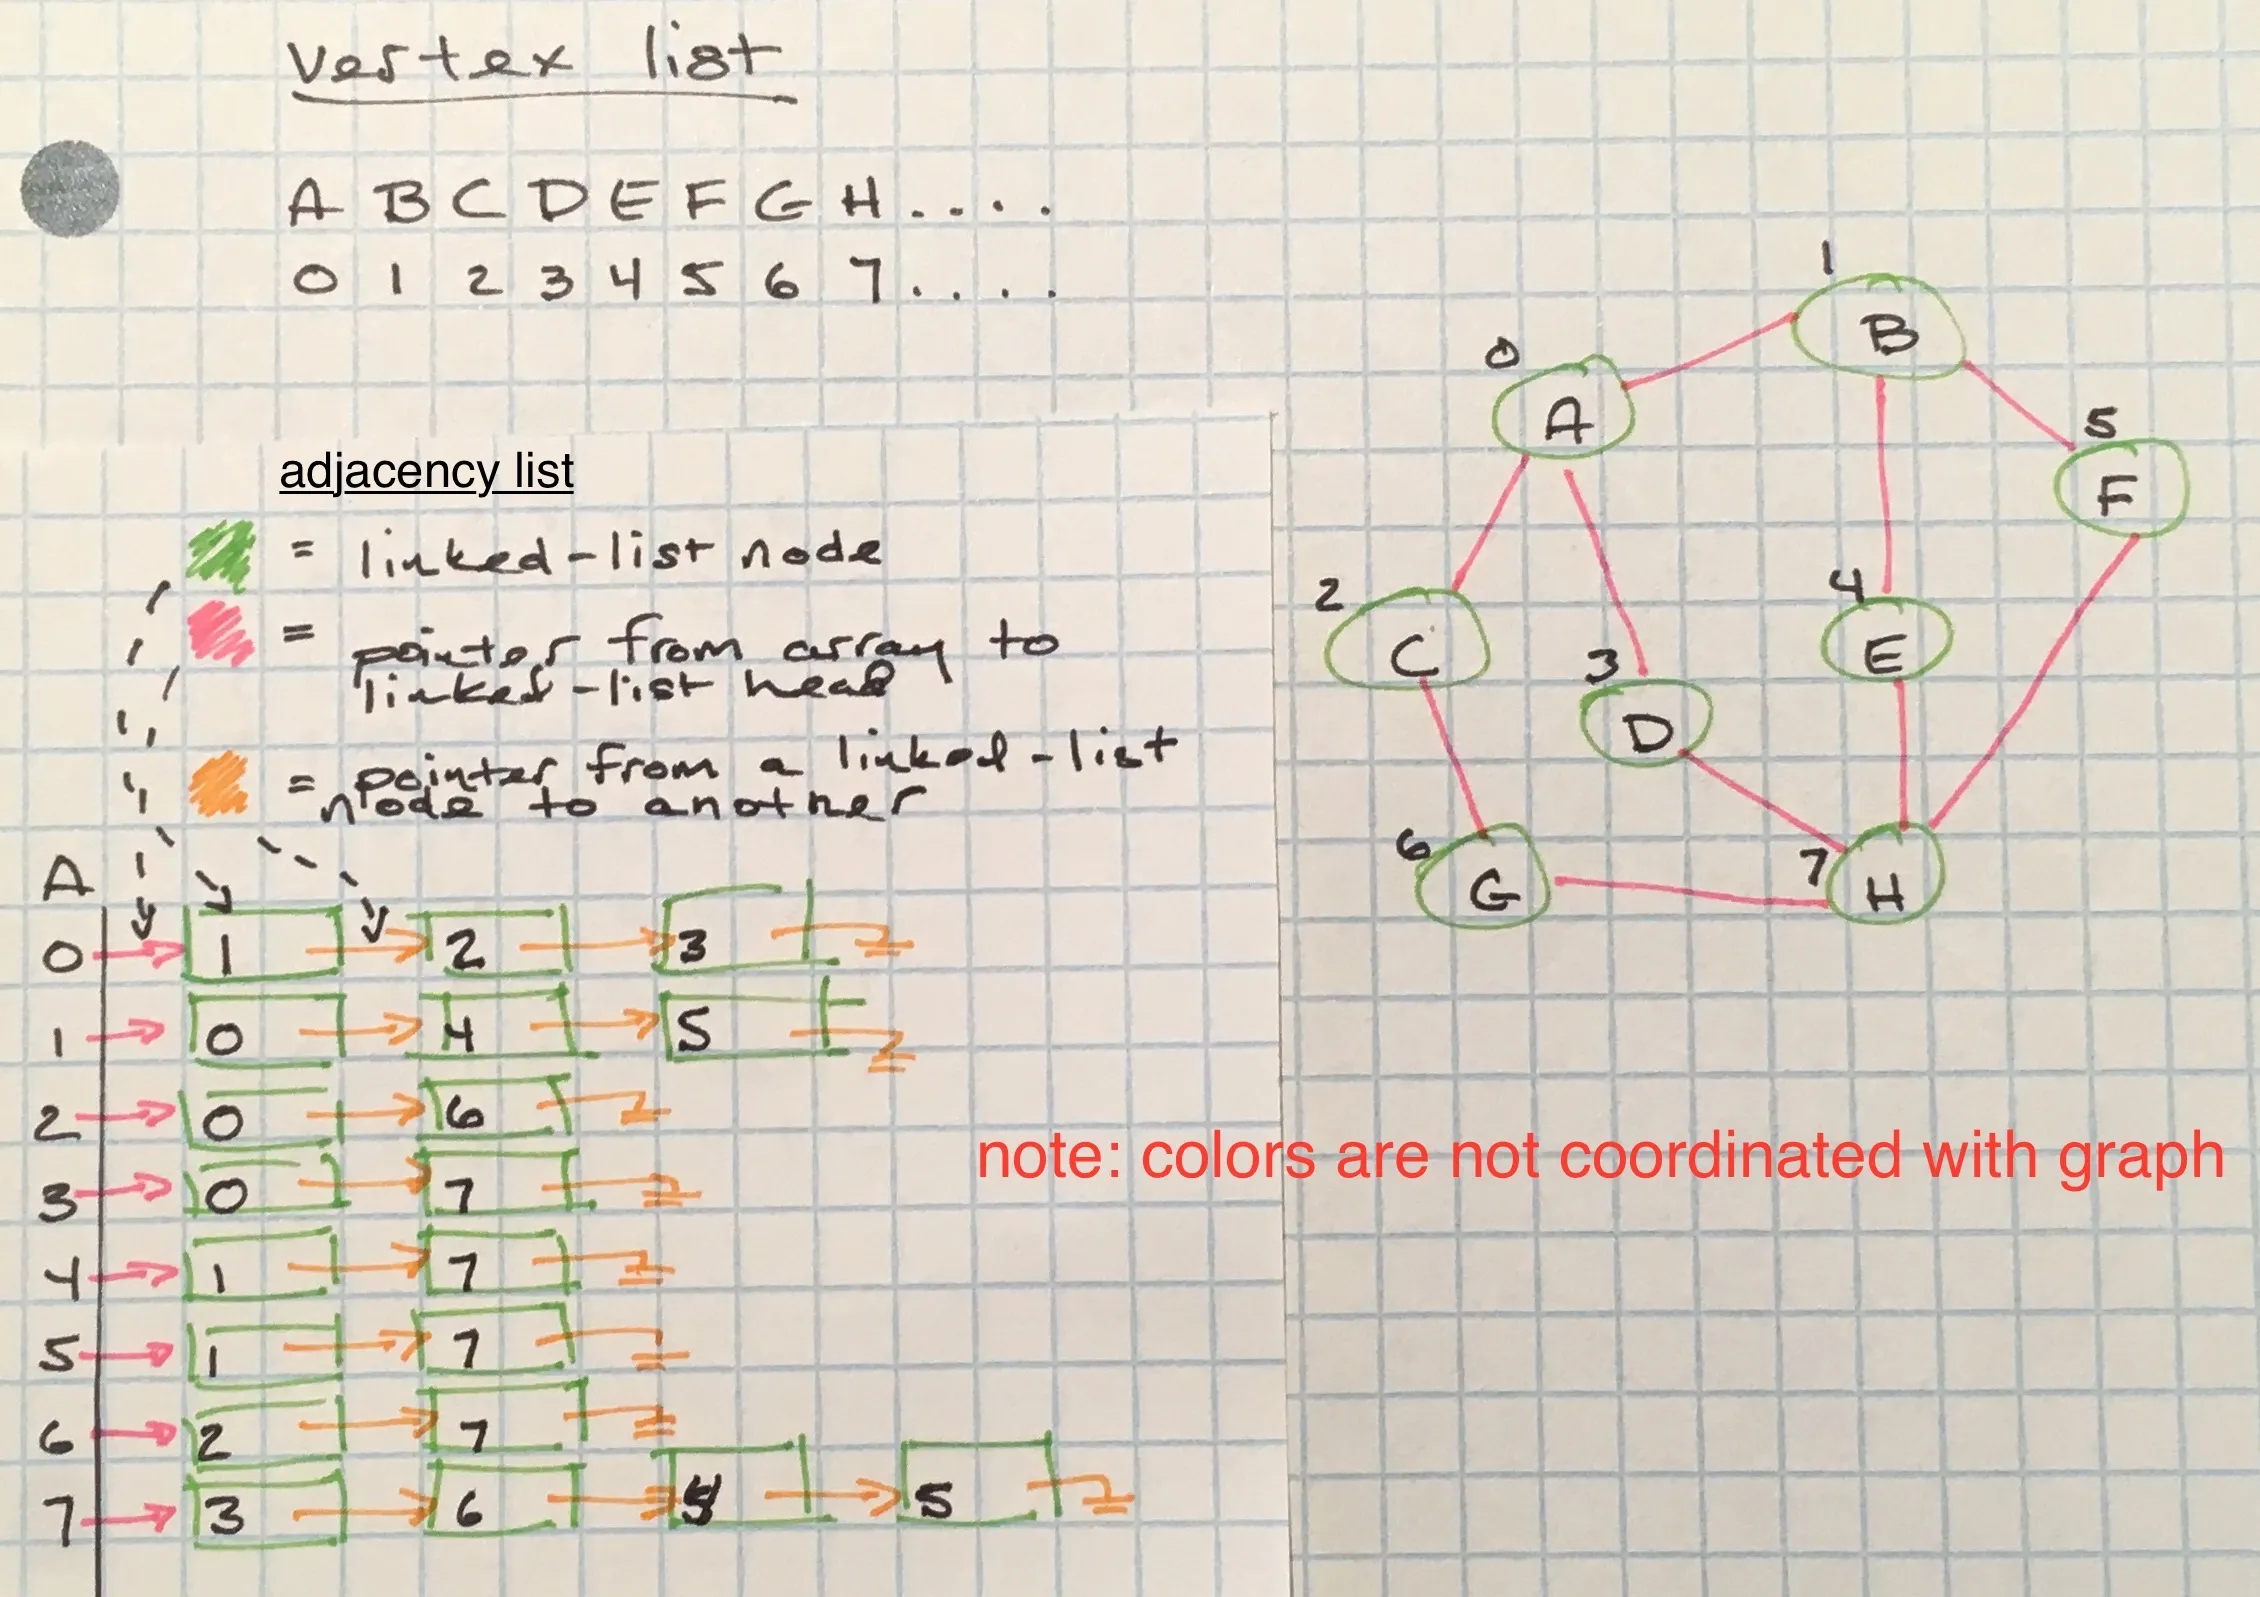 vertex list
A B C D E F G H....
0 1 2 3 4 5 6 7....
adjacency list
= linked-list node
= pointer from array to
linked-list head
= pointer from a linked-list
node to another
A
0 1 2 3
1 0 4 5
2 0 6
3 0 7
4 1 7
5 1 7
6 2 7
7 3 6 5
1
B
0
A
5
F
2
C
4
E
3
D
6
G
7
H
note: colors are not coordinated with graph